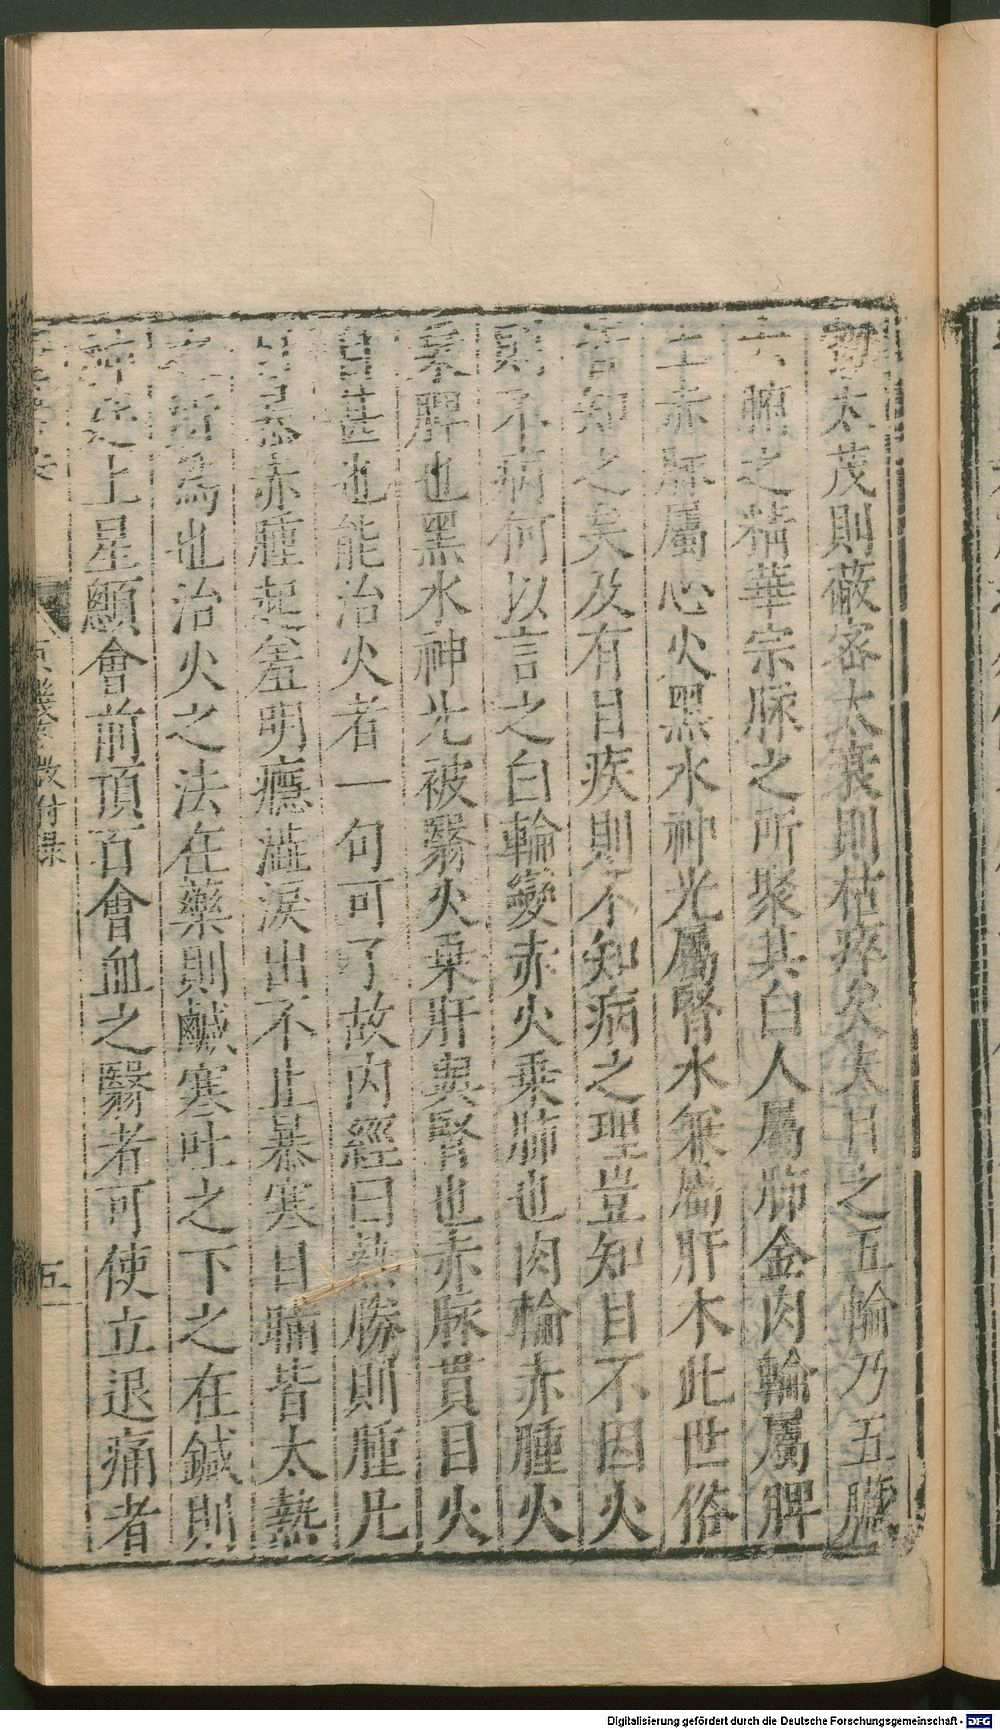 太茂則蔽密太衰則枯瘁矣夫目之五輪乃五臟
六腑之精華宗脉之所聚其白人屬肺金肉輪屬脾
土赤脉屬心火黑水神光屬腎水兼屬肝木此世俗
皆知之矣及有目疾則不知病之理豈知目不因火
則不病何以言之白輪變赤火乗肺也肉輪赤腫火
乗脾也黑水神光被翳火乗肝與腎也赤脉貫目火
自甚也能治火者一句可了故内經曰熱勝則腫凡
目暴赤腫起羞明癮澁淚出不止暴寒目瞞皆太熱
之所為也治火之法在藥則鹹寒吐之下之在鍼則
神庭上星顖會前頂百會血之翳者可使立退痛者
附録
五
Digitalisierung gefördert durch die Deutsche Forschungsgemeinschaft - DFG